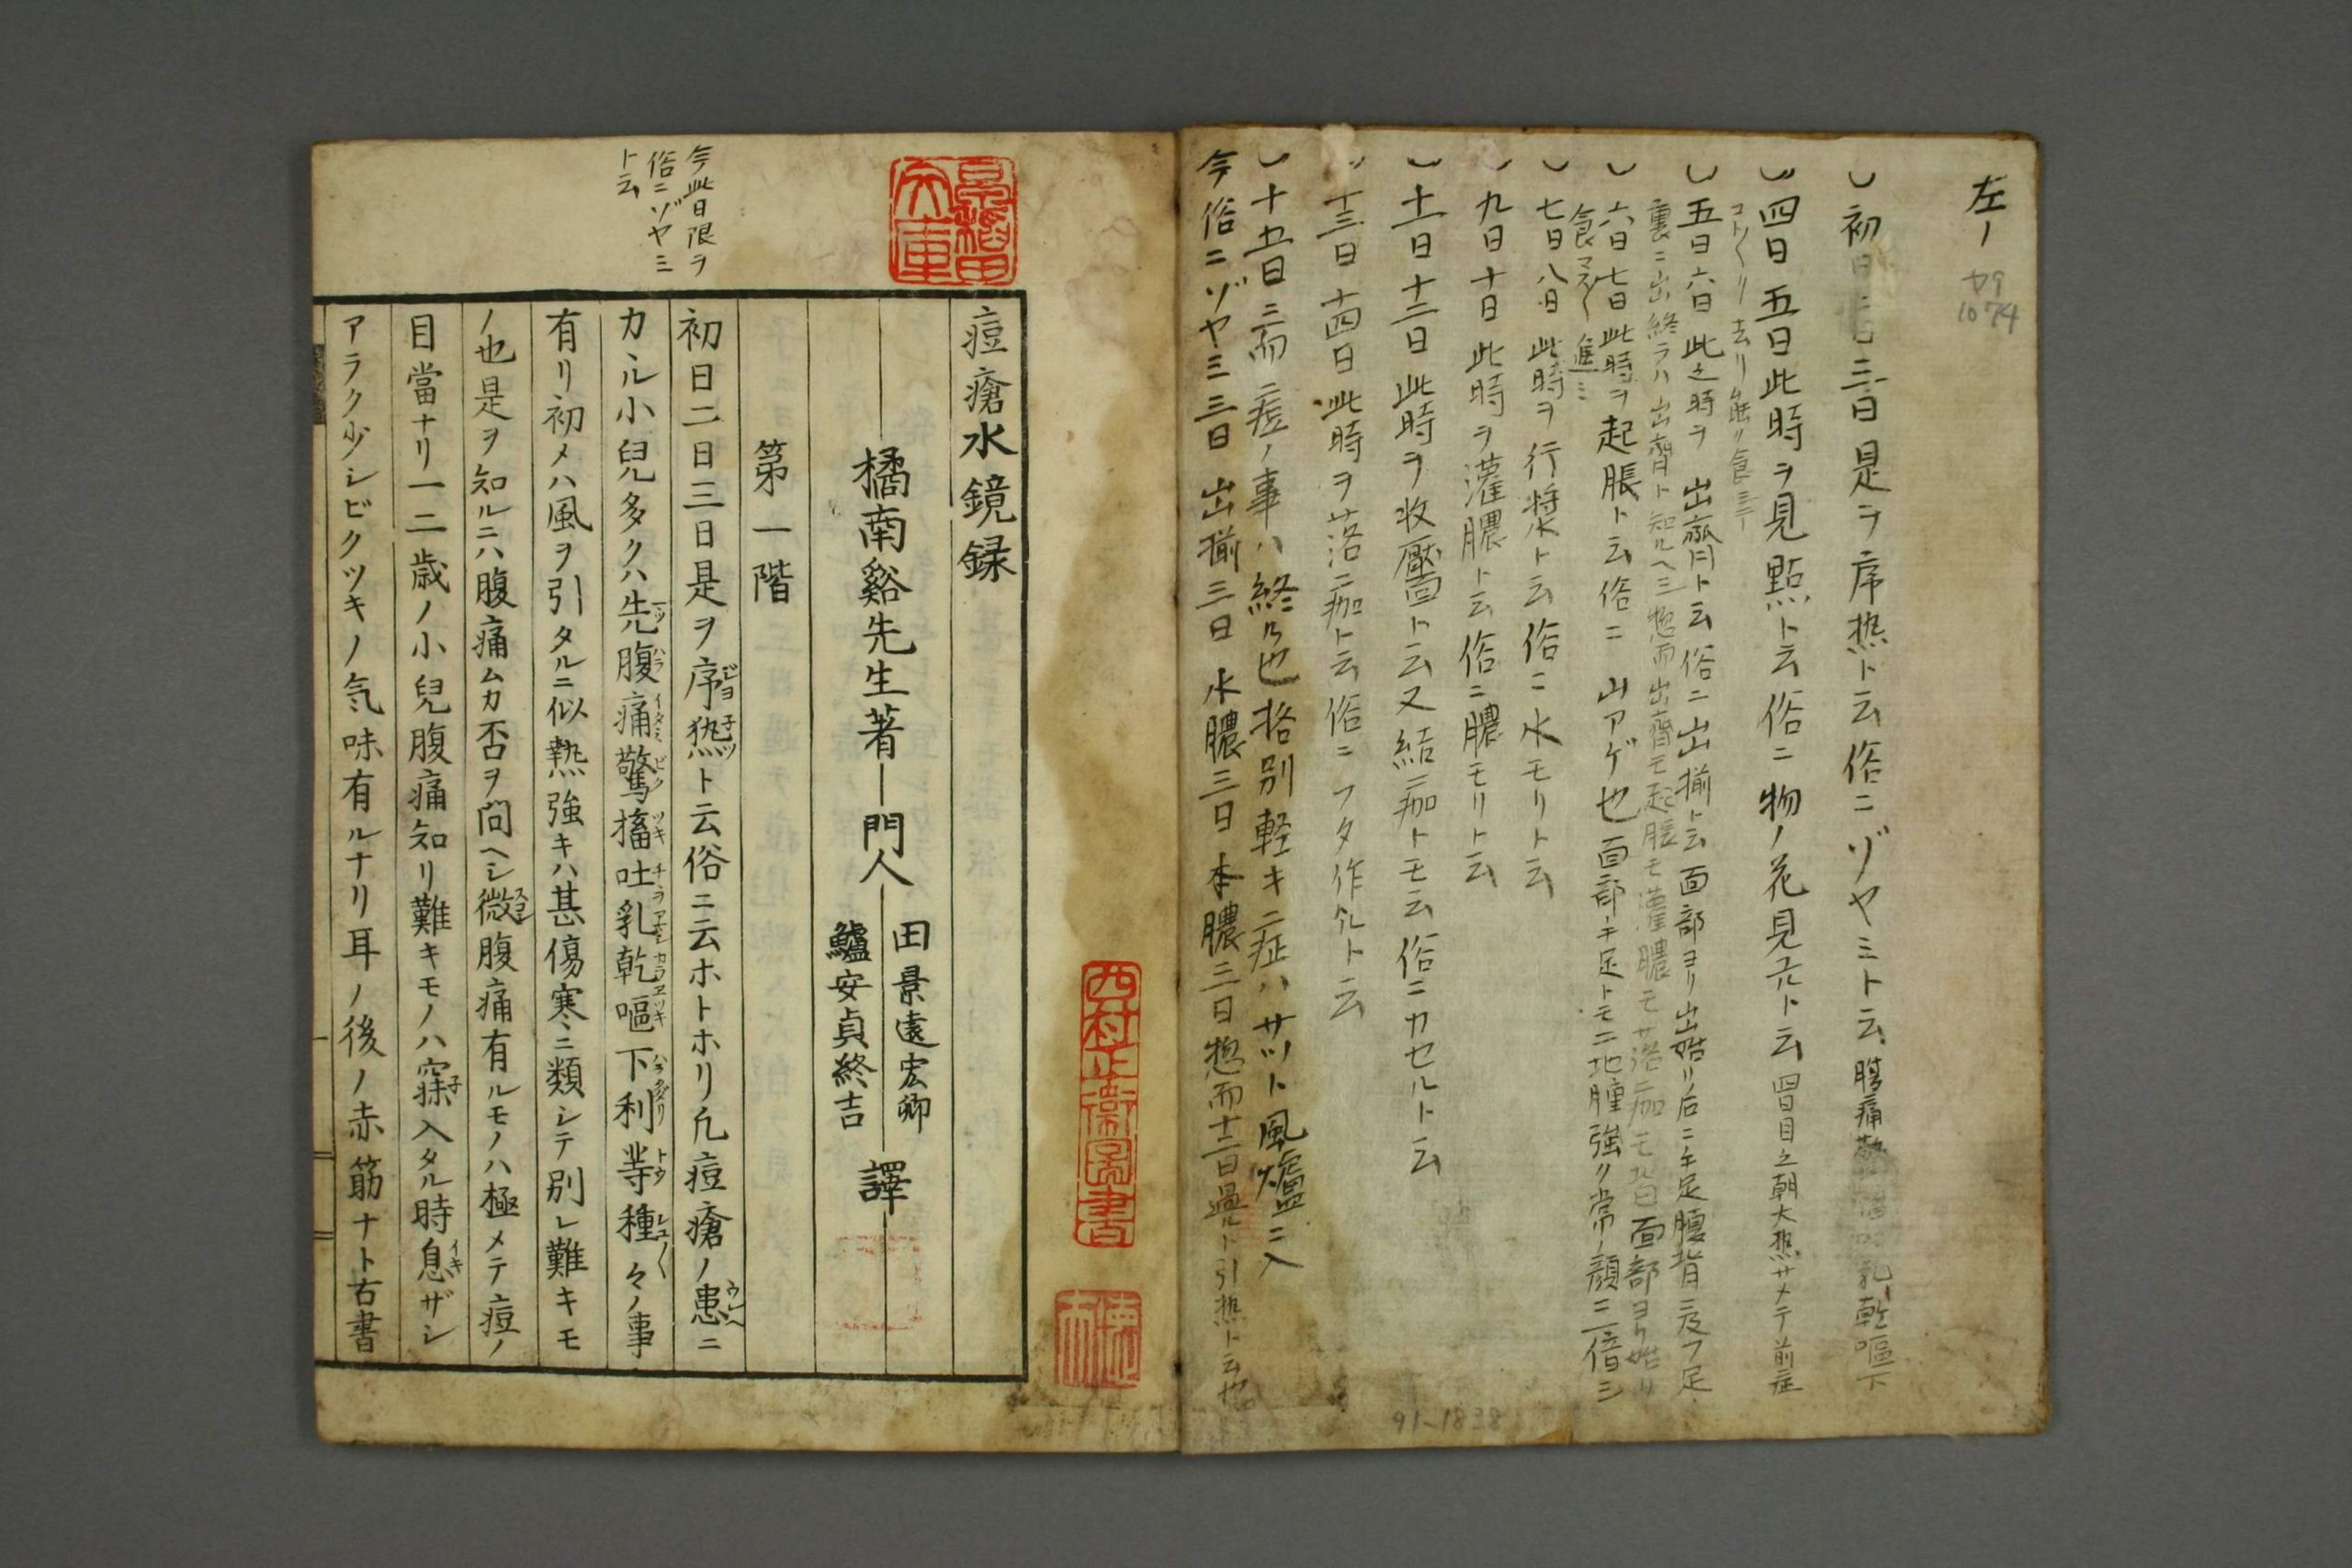 左ノ
ヤ9
1074
初日二日三日是ヲ序热ト云俗ニゾヤミト云腹痛 乳乾嘔下
四日五日此時ヲ見點ト云俗ニ物ノ花見ユルト云四日目之朝大热サメテ前症
五日六日此之時ヲ出齊ト云俗ニ出揃ト云面部ヨリ出始リ后ニ手足腹背ニ及フ足
裏ニ出終ラハ出齊ト知ルヘシ惣而出齊モ起脹モ灌膿モ落痂モ皆面部ヨリ始リ
六日七日此時ヲ起脹ト云俗ニ山アゲ也面部手足トモニ地腫強リ常ノ顔ニ二倍シ
食マス〳〵進ミ
七日八日此時ヲ行漿ト云俗ニ水モリト云
九日十日此時ヲ灌膿ト云俗ニ膿モリト云
十一日十二日此時ヲ收靨ト云又結痂トモ云俗ニカセルト云
十三日十四日此時ヲ落痂ト云俗ニフタ作ルト云
十五日ニ而痘ノ事ハ終ル也格別軽キ症ハサツト風爐ニ入
今俗ニゾヤミ三日出揃三日水膿三日本膿三日惣而十二日過ルト引热ト云也
91-1838
痘瘡水鏡録
橘南谿先生著
門人
田景遠宏卿
鱸安貞終吉
譯
第一階
初日二日三日是ヲ序熱ト云俗ニ云ホトホリ凡痘瘡ノ患ニ
カヽル小兒多クハ先腹痛驚搐吐乳乾嘔下利䓁種々ノ事
有リ初メハ風ヲ引タルニ似熱強キハ甚傷寒ニ類シテ別レ難キモ
ノ也是ヲ知ルニハ腹痛ムカ否ヲ問ヘシ微腹痛有ルモノハ極メテ痘ノ
目當ナリ一二歳ノ小兒腹痛知リ難キモノハ寐入タル時息ザシ
アラク少シビクツキノ気味有ルナリ耳ノ後ノ赤筋ナト古書
今此日限ヲ
俗ニゾヤミ
ト云